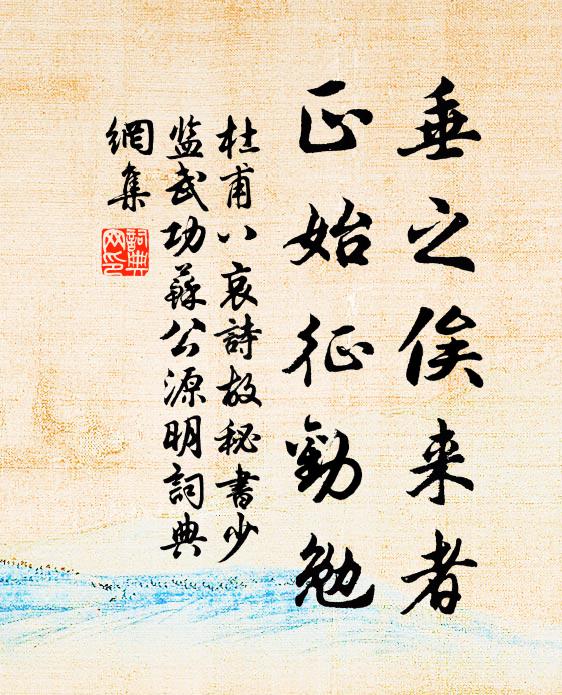 垂之俟来者
正始征勸勉
杜甫八哀詩故秘書少
监武功蘇公源明詞典
網集
詞典
网印